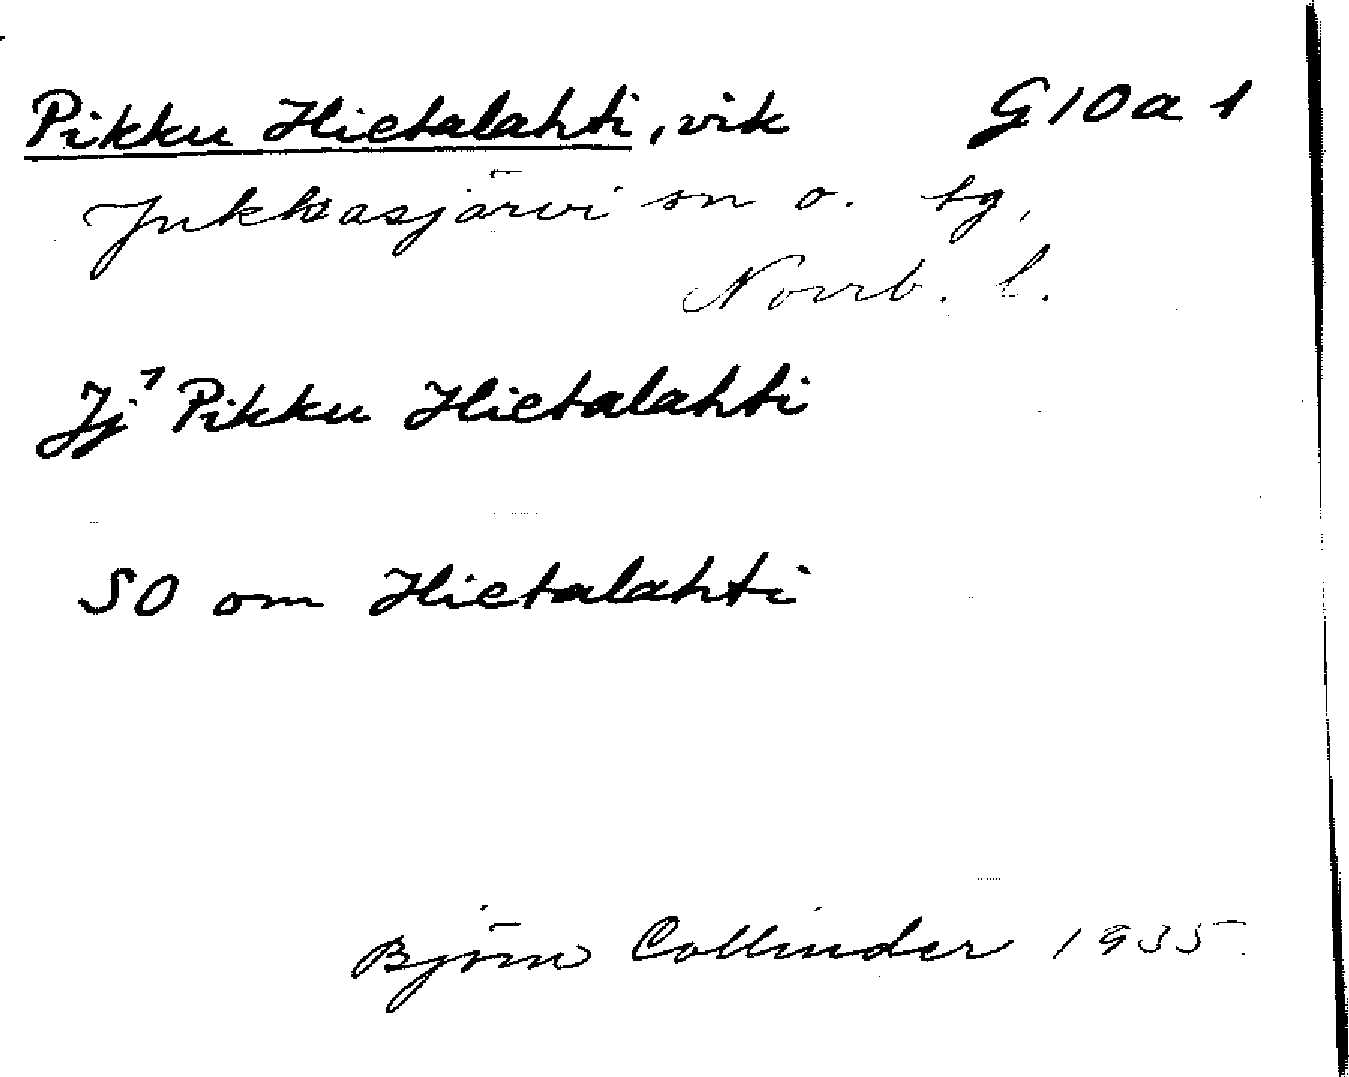 Pikku Hietalahti, vik G10a1
Jukkasjärvi sn o. tg,
Norrb. l.
Jj¹ Pikku Hietalahti
SO om Hietalahti
Björn Collinder 1935.